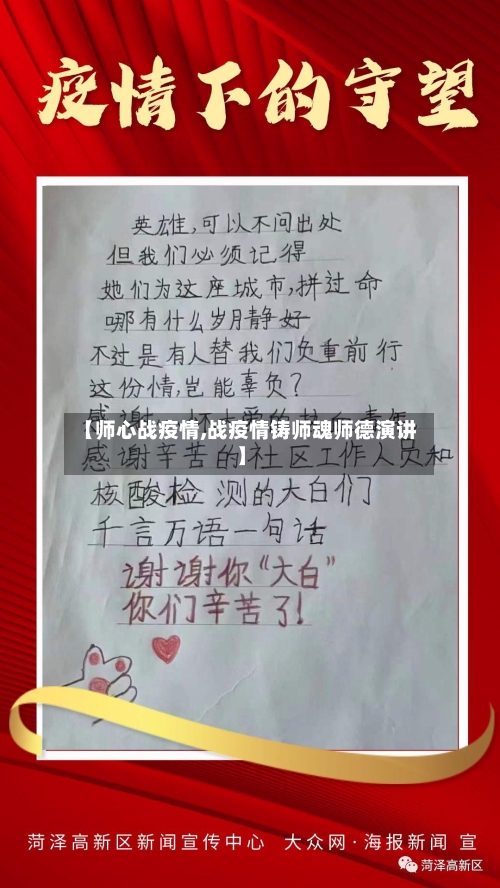 疫情下的守望
英雄,可以不问出处
但我们必须记得
她们为这座城市,拼过命
哪有什么岁月静好
不过是有人替我们负重前行
这份情,岂能辜负?
【师心战疫情,战疫情铸师魂师德演讲
】
感谢辛苦的社区工作人员和
核酸检测的大白们
千言万语一句话
谢谢你“大白”
你们辛苦了!
菏泽高新区新闻宣传中心 大众网·海报新闻 宣
菏泽高新区